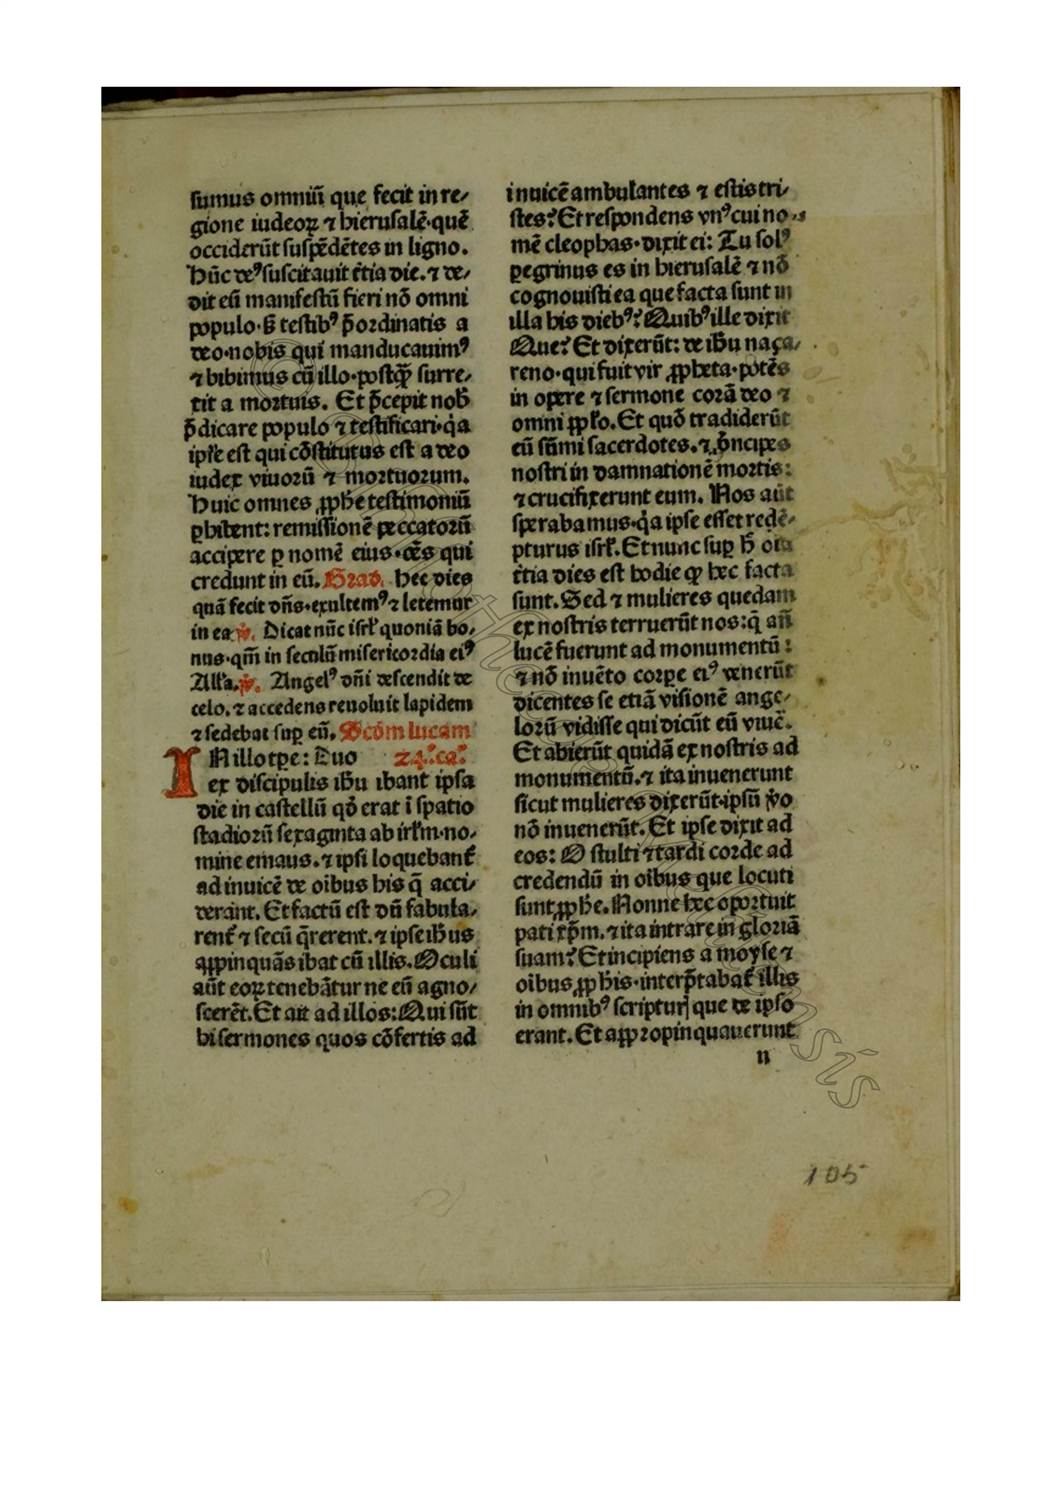 sumus omniū que fecit in re⸗
gione iudeoꝝ ⁊ hierusalē·quē
occiderūt suspēdētes in ligno.
Hūc deꝰ suscitauit t̄tia die.⁊ de⸗
dit eū manifestū fieri nō omni
populo·s̄ testibꝰ p̄ordinatis a
deo·nobis qui manducauimꝰ
⁊ bibimus cū illo·postq̄ȝ surre⸗
xit a mortuis. Et p̄cepit nob̄
p̄dicare populo ⁊ testificari·q̇a
ip̄e est qui cōstitutus est a deo
iudex viuorū ⁊ mortuorum.
Huic omnes ꝓph̄e testimoniū
ꝑhibent: remissionē peccatorū
accipere ꝑ nomē eius·oēs qui
credunt in eū. Grad. Hec dies
quā fecit dn̄s·exultemꝰ ⁊ letemur
in ea ℣. Dicat nūc isrl̄ quoniā bo⸗
nus·qm̄ in seculū misericordia eiꝰ
All̄a.℣. Angelꝰ dn̄i descendit de
celo.⁊ accedens reuoluit lapidem
⁊ sedebat suꝑ eū. Scōm lucam
IN illo tꝑe: Duo 24.ca.
ex discipulis ihū ibant ipsa
die in castellū qd̄ erat ī spatio
stadiorū sexaginta ab irl̄m·no⸗
mine emaus.⁊ ipsi loquebant̄
adinuicē de oībus his q̄ acci⸗
derant. Et factū est dū fabula⸗
rent̄ ⁊ secū q̄rerent.⁊ ipse ihūs
aꝓpinquās ibat cū illis. Oculi
aūt eoꝝ tenebātur ne eū agno⸗
scerēt. Et ait ad illos: Qui sūt
hi sermones quos cōfertis ad
inuicē ambulantes ⁊ estis tri⸗
stes? Et respondens vnꝰ cui no⸗
mē cleophas·dixit ei: Tu solꝰ
ꝑegrinus es in hierusalē ⁊ nō
cognouisti ea que facta sunt in
illa his diebꝰ? Quibꝰ ille dixit
Que? Et dixerūt: de ihū naça⸗
reno·qui fuit vir ꝓpheta·potēs
in opere ⁊ sermone corā deo ⁊
omni ppl̄o. Et quō tradiderūt
eū sūmi sacerdotes.⁊ ṗncipes
nostri in damnationē mortis:
⁊ crucifixerunt eum. Nos aūt
sperabamus·q̇a ipse esset redē⸗
pturus isrl̄. Et nunc suꝑ h̄ oīa
t̄tia dies est hodie qȝ hec facta
sunt. Sed ⁊ mulieres quedam
ex nostris terruerūt nos:q̄ an̄
lucē fuerunt ad monumentū:
⁊ nō inuēto corpe eiꝰ venerūt
dicentes se etiā visionē ange⸗
lorū vidisse qui dicūt eū viuē.
Et abierūt quidā ex nostris ad
monumentū.⁊ ita inuenerunt
sicut mulieres dixerūt·ipsū v̊o
nō inuenerūt. Et ipse dixit ad
eos: O stulti ⁊ tardi corde ad
credendū in oībus que locuti
sunt ꝓph̄e. Nonne hec oportuit
pati xp̄m.⁊ ita intrare in gloriā
suam? Et incipiens a moyse ⁊
oībus ꝓph̄is·interp̄tabat̄ illis
in omnibꝰ scripturꝭ que de ipso
erant. Et aꝓpropinquauerunt
n
105